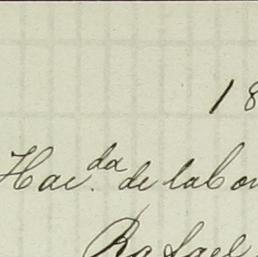 18
Hac.da de labor
Rafael